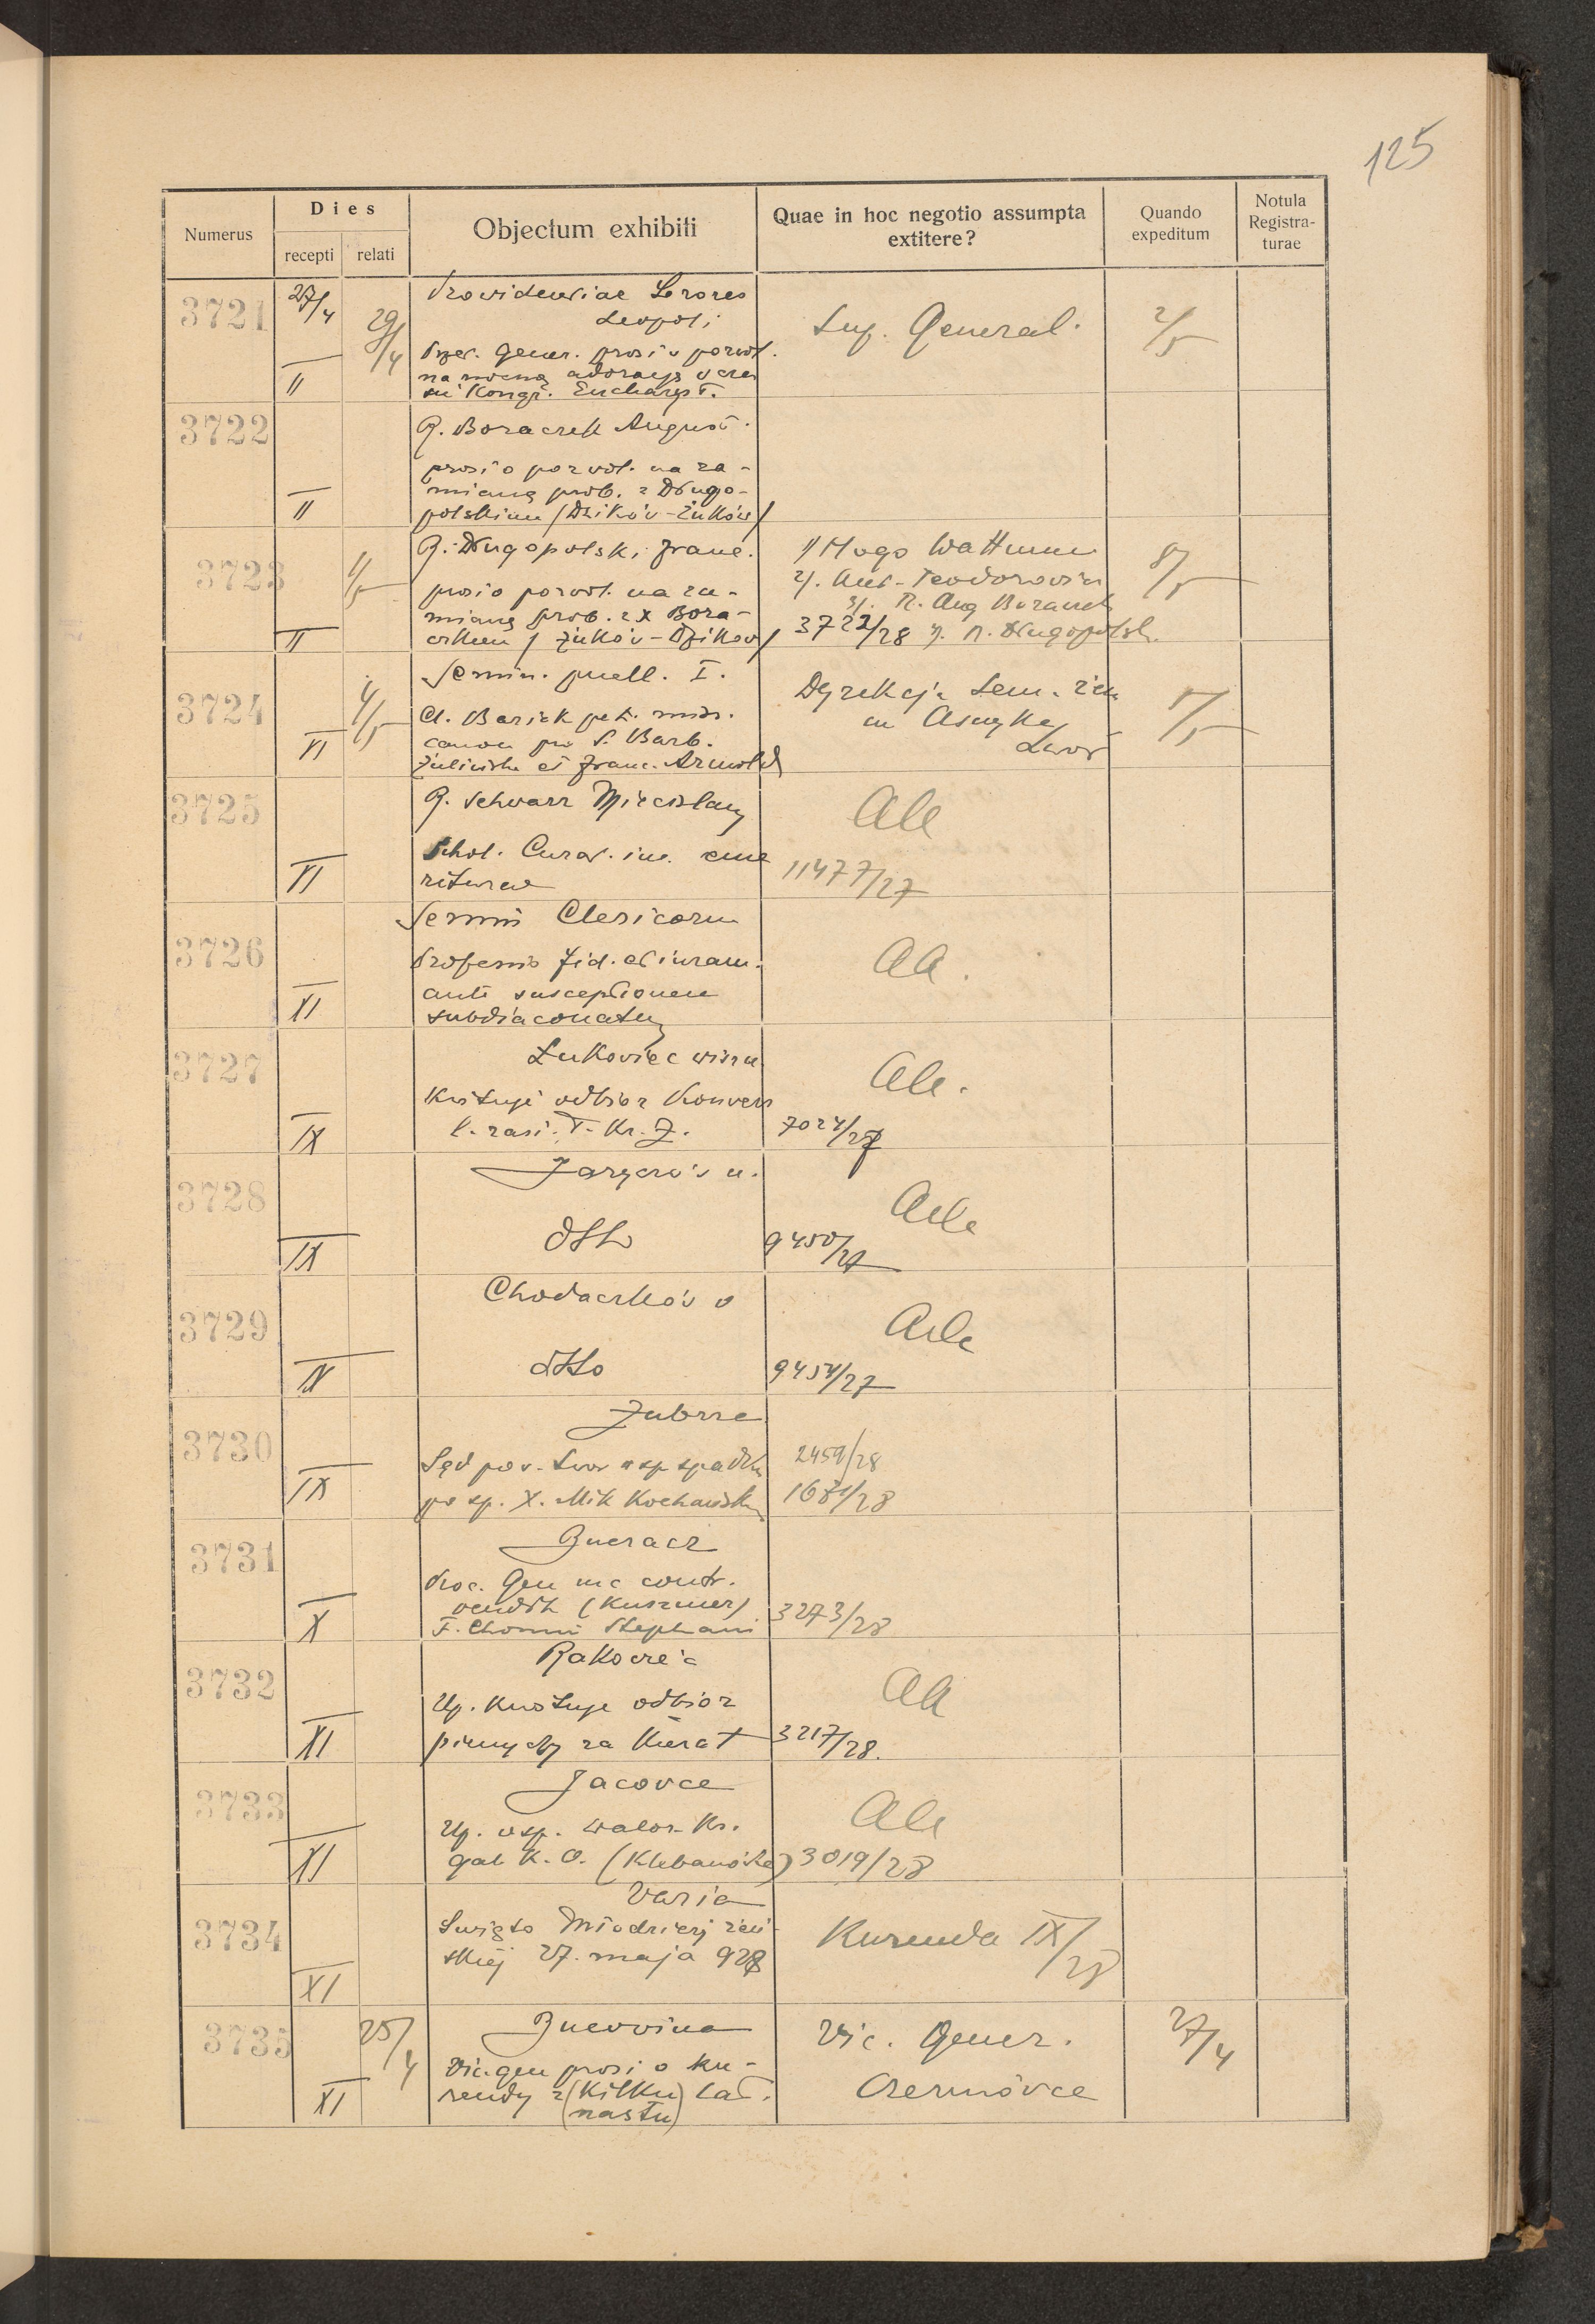 125
Numerus
Dies
recepti
relati
Objectum exhibiti
Quae in hoc negotio assumpta
extitere?
Quando
expeditum
Notula
Registra-
turae
3721
27/4
29/4
II
Providentiae Sorores
Leopoli
Przeł. gener. prosi o pozwol.
na nocną adorację w cza
sie Kongr. Eucharyst.
Sup. General.
2/5
3722
II
R. Boraczek August.
prosi o pozwol. na za-
mianę prob. z Długo-
polskim (Dzików-Żuków)
3723
4/5
II
R. Długopolski Franc.
prosi o pozwol. na za-
mianę prob. z X Bora-
czkiem / Żuków-Dzików/
1/ Hugo Wattmann
2/. Ant. Teodorowicz
3/. R. Aug Boraczek
3722/28 4. R. Długopolsk.
8/5
3724
4/5
VI
Semin. puell. I.
Cl. Bariek pet. miss.
canon pro S. Barb.
Żulińska et Franc. Arnold
Dyrekcja Sem. żeń
im Asnyka
Lwów
5/5
3725
VI
R. Schwarz Miecislaus
Schol. Curat. in eme
rituram
Ale
11477/27
3726
XI
Semin Clericorum
Professio fid. et iuram.
ante susceptionem
subdiaconatus
AA.
3727
IX
Łukowiec wiszn
Kwituje odbiór konwers
l. zast. T. Kr. Z.
Ale.
7024/27
3728
IX
Jaryczów n.
dtto
Ale
9450/27
3729
IX
Chodaczków w
dtto
Ale
9454/27
3730
IX
Zubrze
Sąd pow. Lwów w sp spadku
po śp. X. Mik Kochański
2459/28
1684/28
3731
X
Buczacz
Proc. Gen
contr.
vendit (Kuszmer)
F. Chomin Stephani
3273/28
3732
XI
Rakowiec
Up. Kwituje odbiór
pieniędzy za Kurat
AA
3217/28.
3733
XI
Jacowce
Up. w sp. walor. Kr.
gal K. O. (Klebanówka)
Ale
3019/28
3734
XI
Varia
Święto Młodzieży żeń
skiej 27. maja 928
Kurenda IX/28
3735
25/4
XI
Bucovina
Vic. gen prosi o ku-
rendy z (kilku) lat.
(nastu)
Vic. Gener.
Czerniowce
27/4